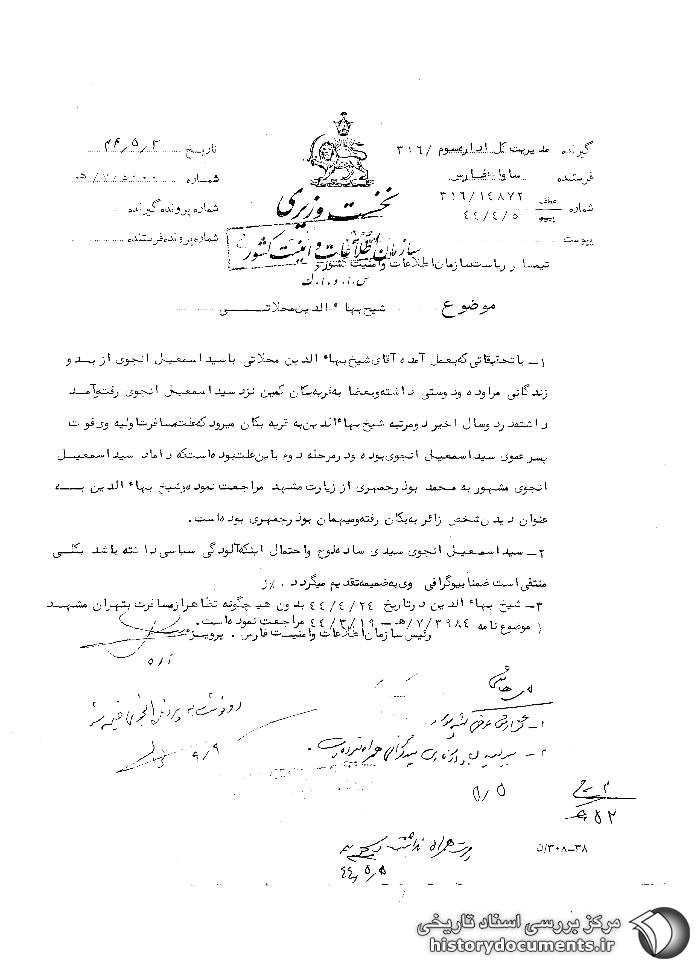 گیرنده مدیریت کل اداره سوم /۳۱۶
فرستنده ساواک فارس
شماره عطف ۳۱۶/۱۴۸۷۲
پیرو ۴۴/۴/۵
پیوست
نخست وزیری
سازمان اطلاعات و امنیت کشور
س.ا.و.ا.ک
تاریخ ۴۴/۵/۲
شماره
شماره پرونده گیرنده
شماره پرونده فرستنده
تیمسار ریاست سازمان اطلاعات و امنیت کشور
موضوع شیخ بهاءالدین محلاتی
۱ـ با تحقیقاتی که بعمل آمده آقای شیخ بهاءالدین محلاتی با سید اسمعیل انجوی از بدو
زندگانی مراوده و دوستی داشته و بعضا به قریه بکان کمین نزد سید اسمعیل انجوی رفت و آمد
داشته در دو سال اخیر دو مرتبه شیخ بهاءالدین به قریه بکان میرود که علت مسافرت اولیه وی فوت
پسر عموی سید اسمعیل انجوی بوده و در مرحله دوم باین علت بوده است که داماد سید اسمعیل
انجوی مشهور به محمد بوذرجمهری از زیارت مشهد مراجعت نموده و شیخ بهاءالدین به
عنوان دیدن شخص زائر به بکان رفته و میهمان بوذرجمهری بوده است.
۲ـ سید اسمعیل انجوی سیدی ساده لوح و احتمال اینکه آلودگی سیاسی داشته باشد بکلی
منتفی است ضمنا بیوگرافی وی به ضمیمه تقدیم میگردد.
۳ـ شیخ بهاءالدین در تاریخ ۴۴/۴/۲۴ بدون هیچگونه تظاهر از مسافرت بتهران مشهد
( موضوع نامه ۳۹۸۴/۷/هـ ـ ۴۴/۳/۱۹ مراجعت نموده است.
رئیس سازمان اطلاعات و امنیت فارس. پرویز
۹/۹
۵/۵
۵۲
همراه نداشت
۴۴/۵/۵
۳۸ـ۳۰۸/ن
مرکز بررسی اسناد تاریخی
historydocuments.ir